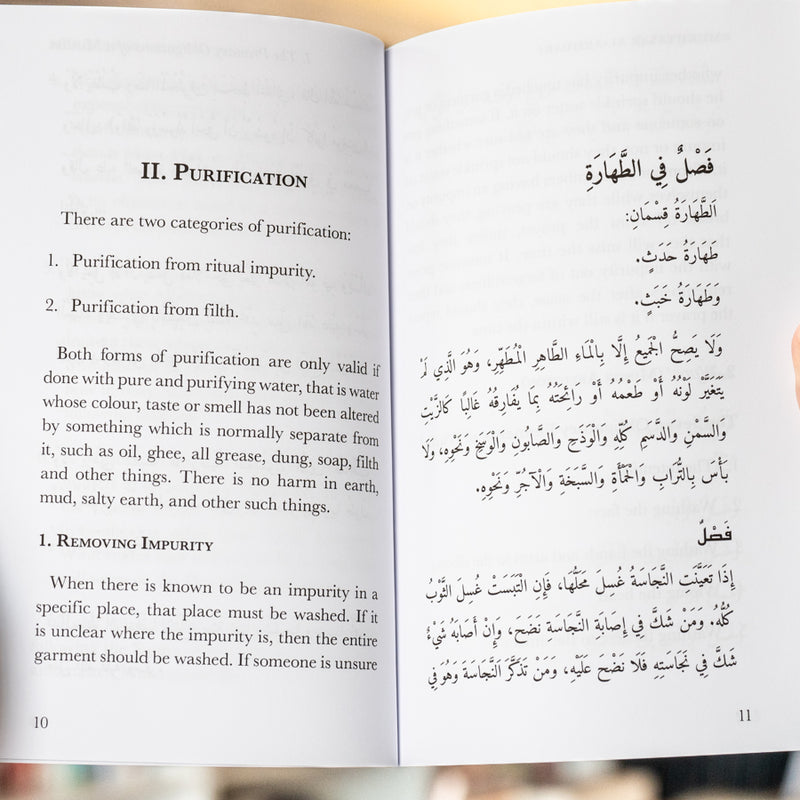 II. Purification
There are two categories of purification:
1. Purification from ritual impurity.
2. Purification from filth.
Both forms of purification are only valid if
done with pure and purifying water, that is water
whose colour, taste or smell has not been altered
by something which is normally separate from
it, such as oil, ghee, all grease, dung, soap, filth
and other things. There is no harm in earth,
mud, salty earth, and other such things.
1. Removing Impurity
When there is known to be an impurity in a
specific place, that place must be washed. If it
is unclear where the impurity is, then the entire
garment should be washed. If someone is unsure
10
فَصْلٌ فِي الطَّهَارَةِ
اَلطَّهَارَةُ قِسْمَانِ:
طَهَارَةُ حَدَثٍ.
وَطَهَارَةُ خَبَثٍ.
وَلَا يَصِحُّ الْجَمِيعُ إِلَّا بِالْمَاءِ الطَّاهِرِ الْمُطَهِّرِ، وَهُوَ الَّذِي لَمْ
يَتَغَيَّرْ لَوْنُهُ أَوْ طَعْمُهُ أَوْ رَائِحَتُهُ بِمَا يُفَارِقُهُ غَالِبًا كَالزَّيْتِ
وَالسَّمْنِ وَالدَّسَمِ كُلِّهِ وَالْوَذَحِ وَالصَّابُونِ وَالْوَسَخِ وَنَحْوِهِ، وَلَا
بَأْسَ بِالتُّرَابِ وَالْحَمْأَةِ وَالسَّبَخَةِ وَالْآجُرِّ وَنَحْوِهِ.
فَصْلٌ
إِذَا تَعَيَّنَتِ النَّجَاسَةُ غُسِلَ مَحَلُّهَا، فَإِنِ الْتَبَسَتْ غُسِلَ الثَّوْبُ
كُلُّهُ. وَمَنْ شَكَّ فِي إِصَابَةِ النَّجَاسَةِ نَضَحَ، وَإِنْ أَصَابَهُ شَيْءٌ
شَكَّ فِي نَجَاسَتِهِ فَلَا نَضْحَ عَلَيْهِ، وَمَنْ تَذَكَّرَ النَّجَاسَةَ وَهُوَ فِي
11